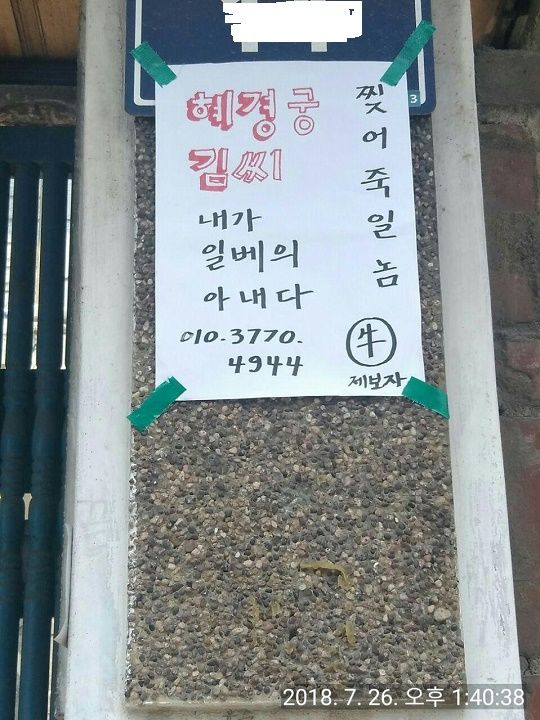 혜경궁
김씨
내가
일베의
아내다
010.3770.
4944
찢어죽일놈
牛
제보자
3
2018. 7. 26. 오후 1:40:38